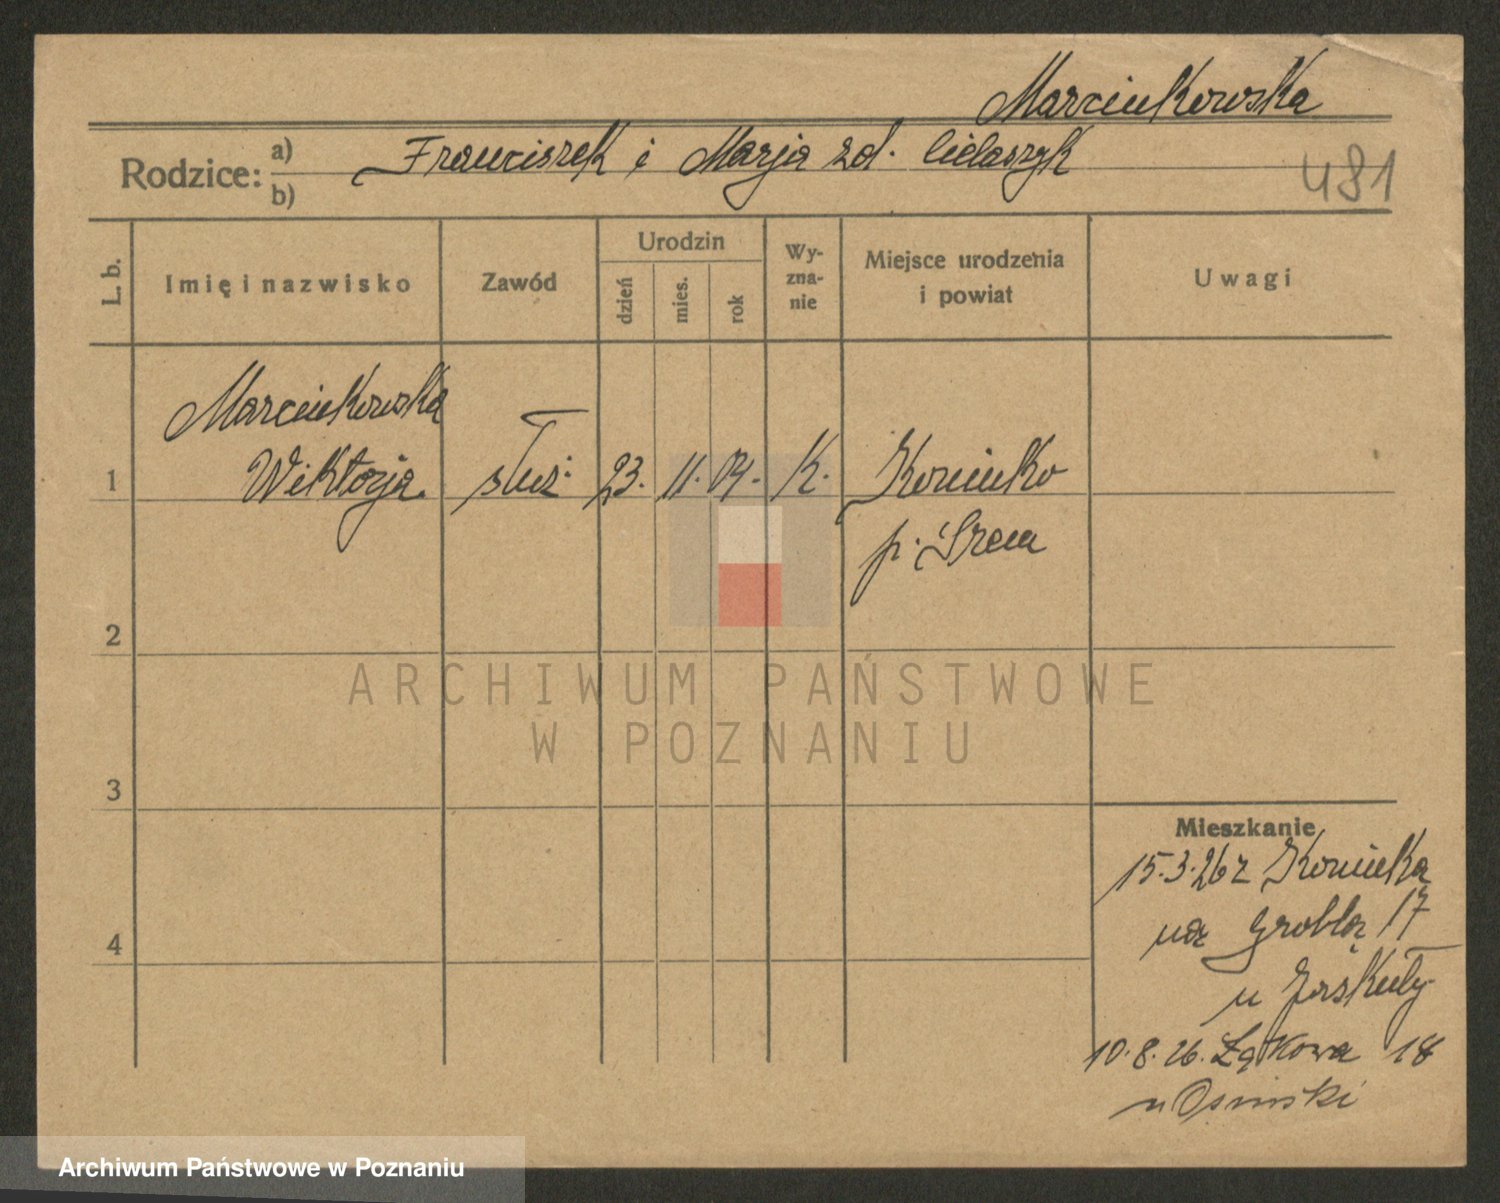 Marcinkowska
Rodzice: a) Franciszek i Marja zd. Cielaszyk
b)
481
L. b.
Imię i nazwisko
Zawód
Urodzin
dzień
mies.
rok
Wy-
zna-
nie
Miejsce urodzenia
i powiat
Uwagi
Marcinkowska
1 Wiktorja służ. 23. 11. 04. K. Koninko
p. Śrem
2
3
4
Mieszkanie
15.3.26 z Koninka
na Groblą 17
u Jaskuły
10.8.26. Łąkowa 18
u Osinski
ARCHIWUM PAŃSTWOWE
W POZNANIU
Archiwum Państwowe w Poznaniu